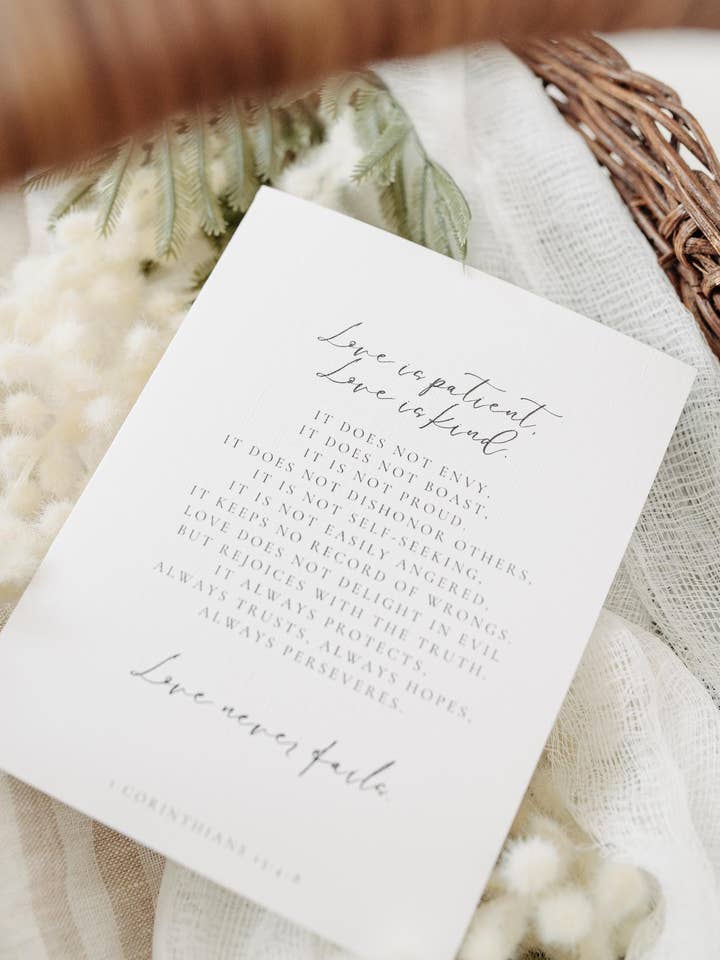 Love is patient,
Love is kind.
IT DOES NOT ENVY,
IT DOES NOT BOAST,
IT IS NOT PROUD.
IT DOES NOT DISHONOR OTHERS,
IT IS NOT SELF-SEEKING,
IT IS NOT EASILY ANGERED,
IT KEEPS NO RECORD OF WRONGS.
LOVE DOES NOT DELIGHT IN EVIL
BUT REJOICES WITH THE TRUTH.
IT ALWAYS PROTECTS,
ALWAYS TRUSTS, ALWAYS HOPES,
ALWAYS PERSEVERES.
Love never fails.
1 CORINTHIANS 13:4-8